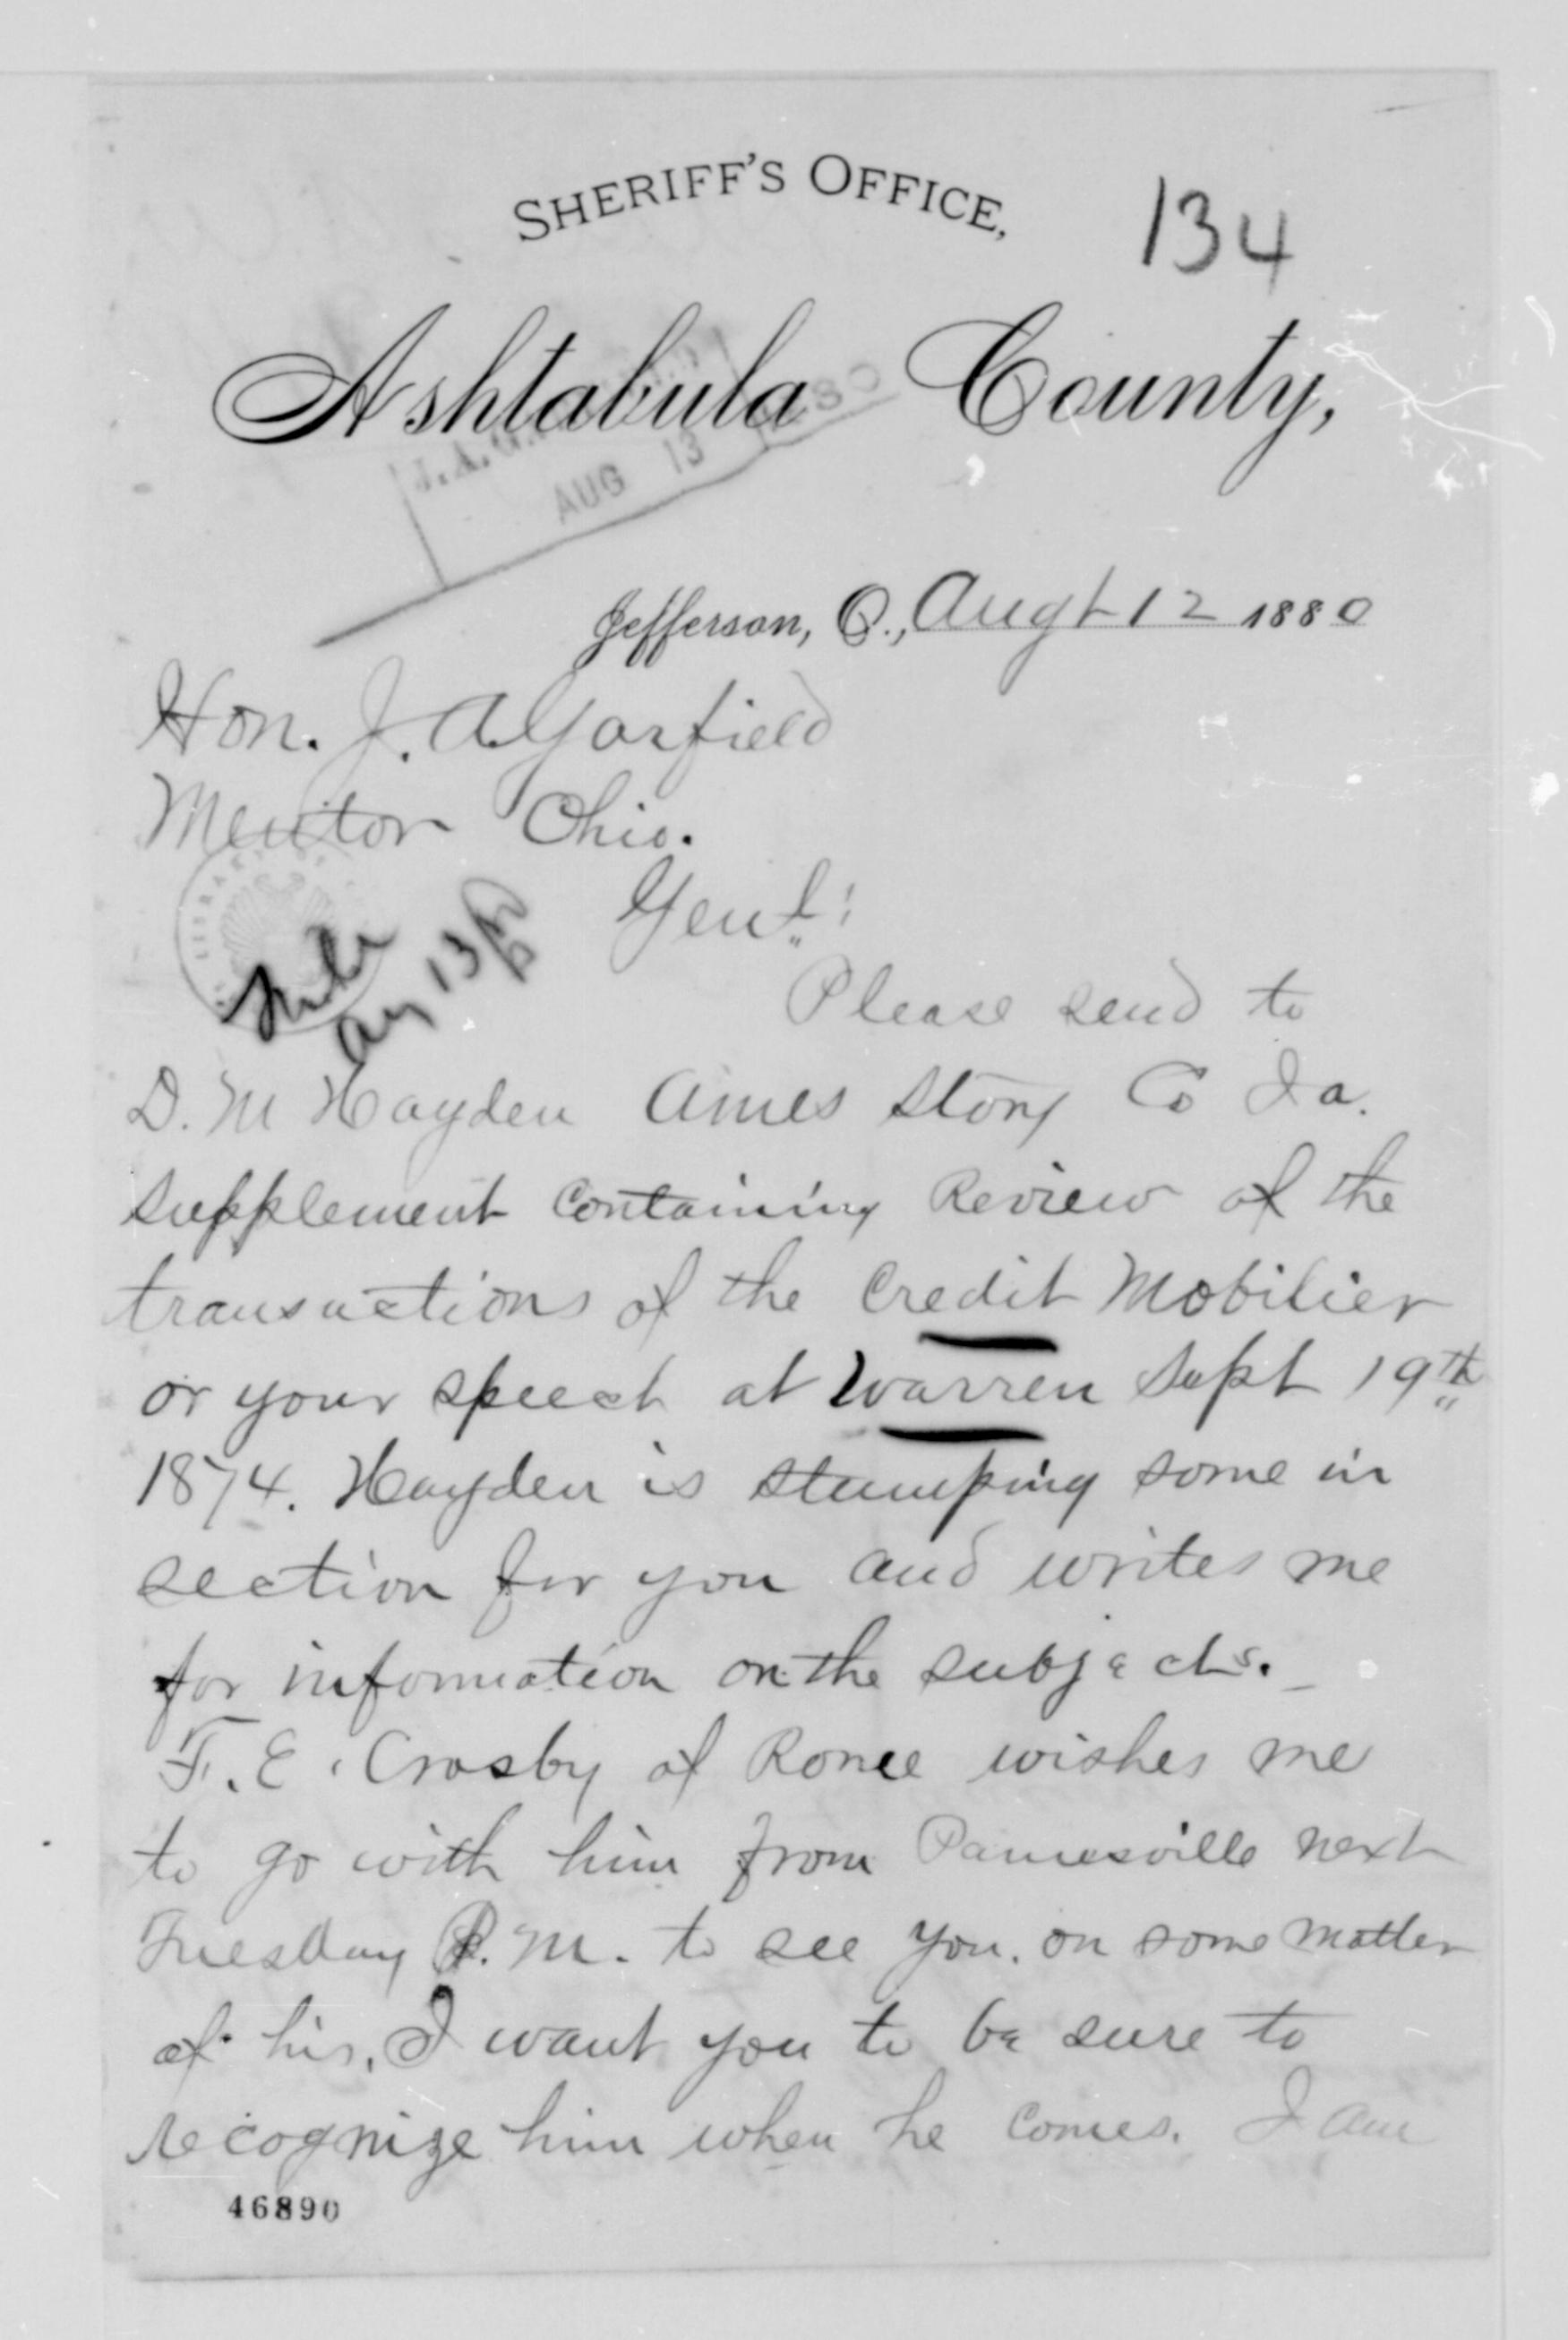 SHERIFF'S OFFICE,
134
Ashtabula County,
J.A.G.
AUG 13 1880
Jefferson, O., Augt 12 1880
Hon. J. A Garfield
Mentor Ohio.
Genl:
Aug 13
Please send to
D. M Hayden Ames Story Co Ia.
supplement containing Review of the
transactions of the Credit Mobilier
or your speech at Warren Sept 19th
1874. Hayden is stumping some in
section for you and writes me
for information on the subjects.
F. E. Crosby of Rome wishes me
to go with him from Painesville next
Tuesday P.M. to see you. on some matter
of his. I want you to be sure to
recognize him when he comes. I am
46890